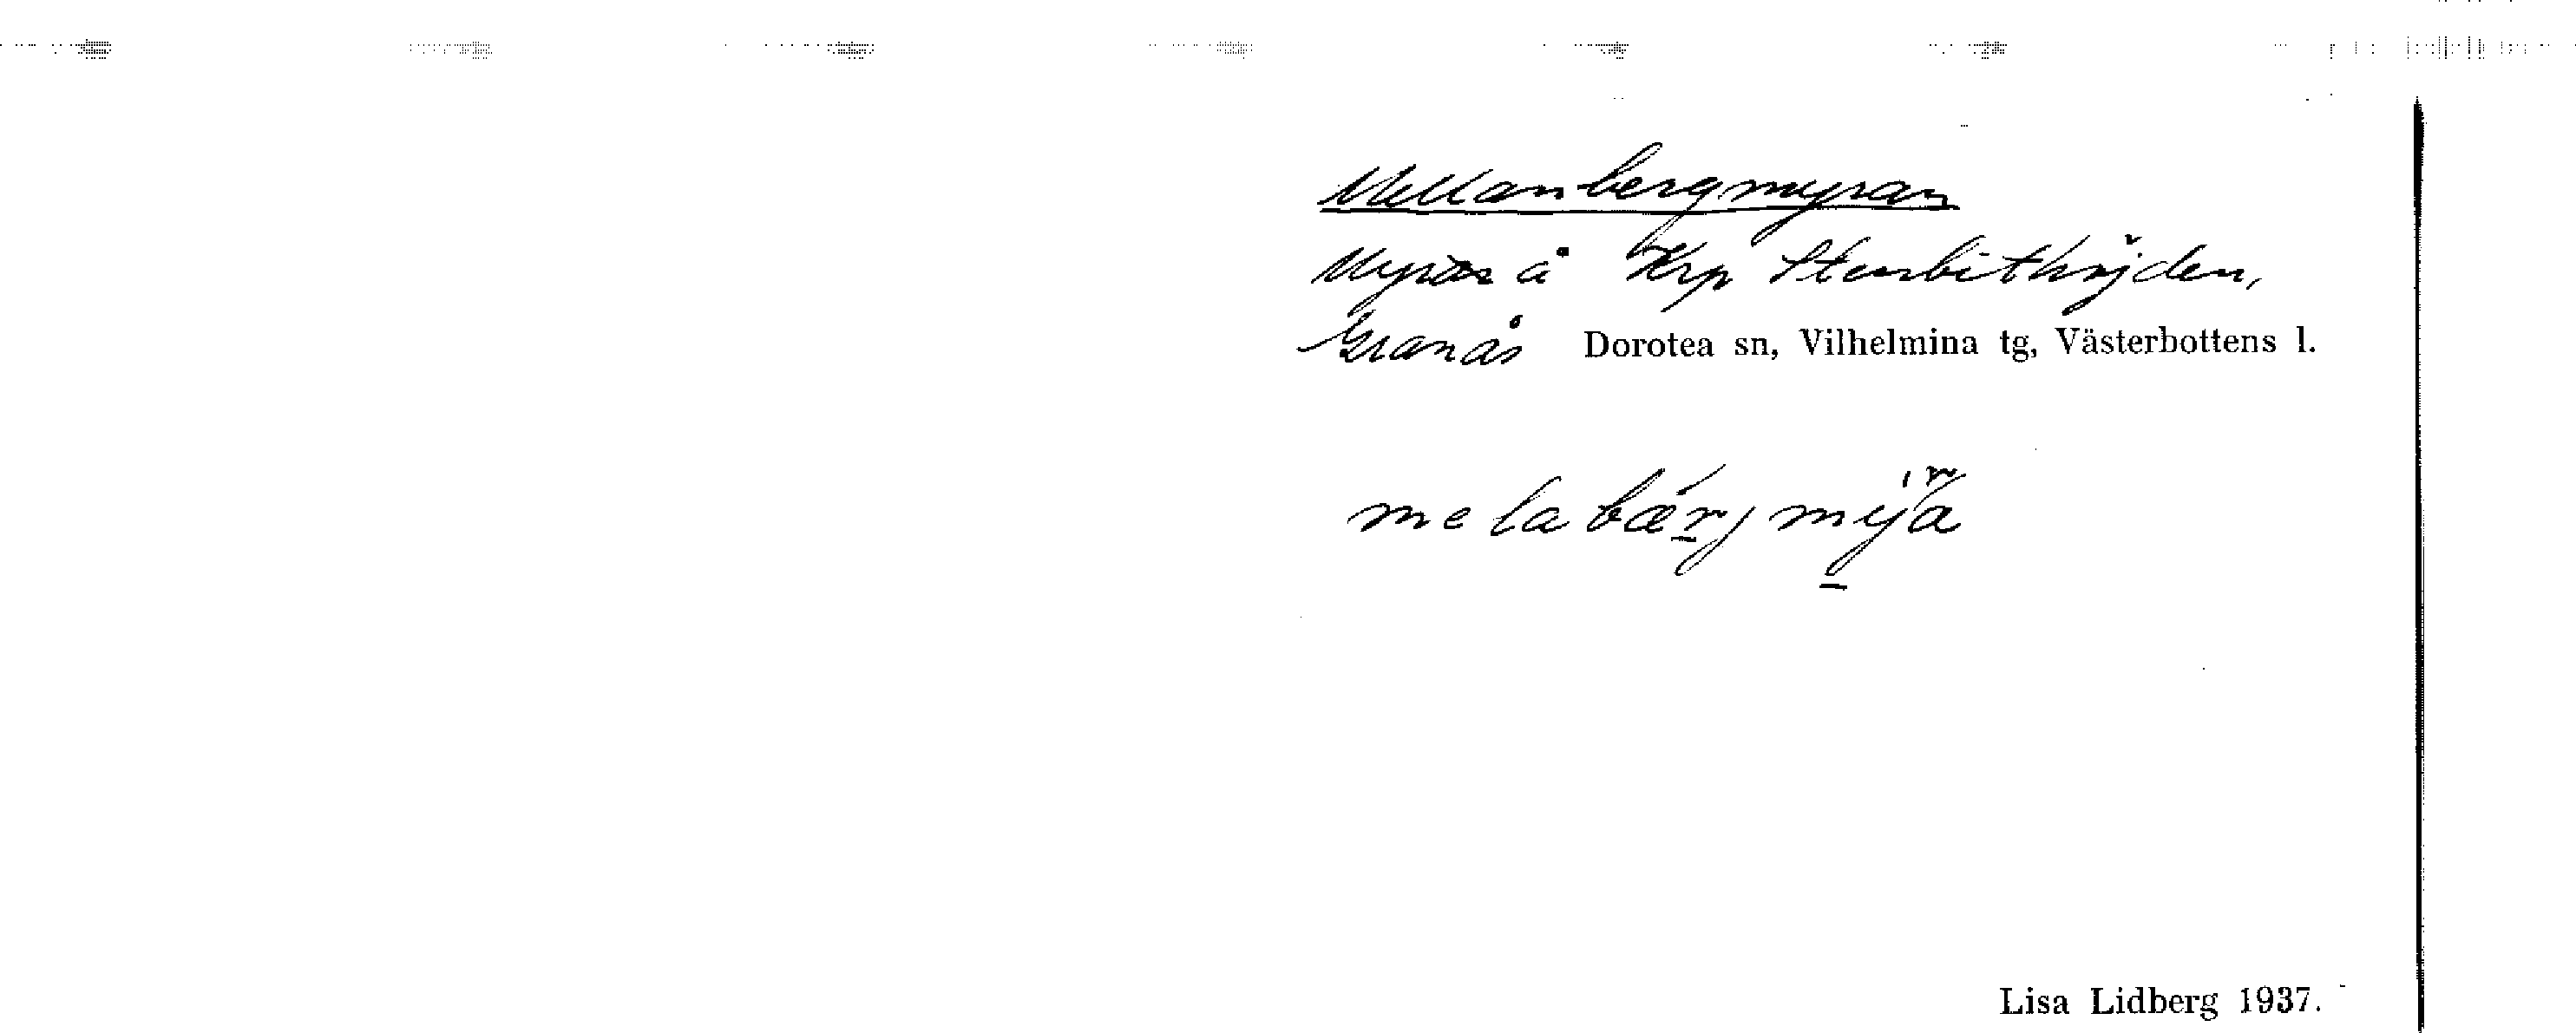 Mellanbergmyran
Myr å Krp Stenbithöjden,
Granås Dorotea sn, Vilhelmina tg, Västerbottens l.
Lisa Lidberg 1937.